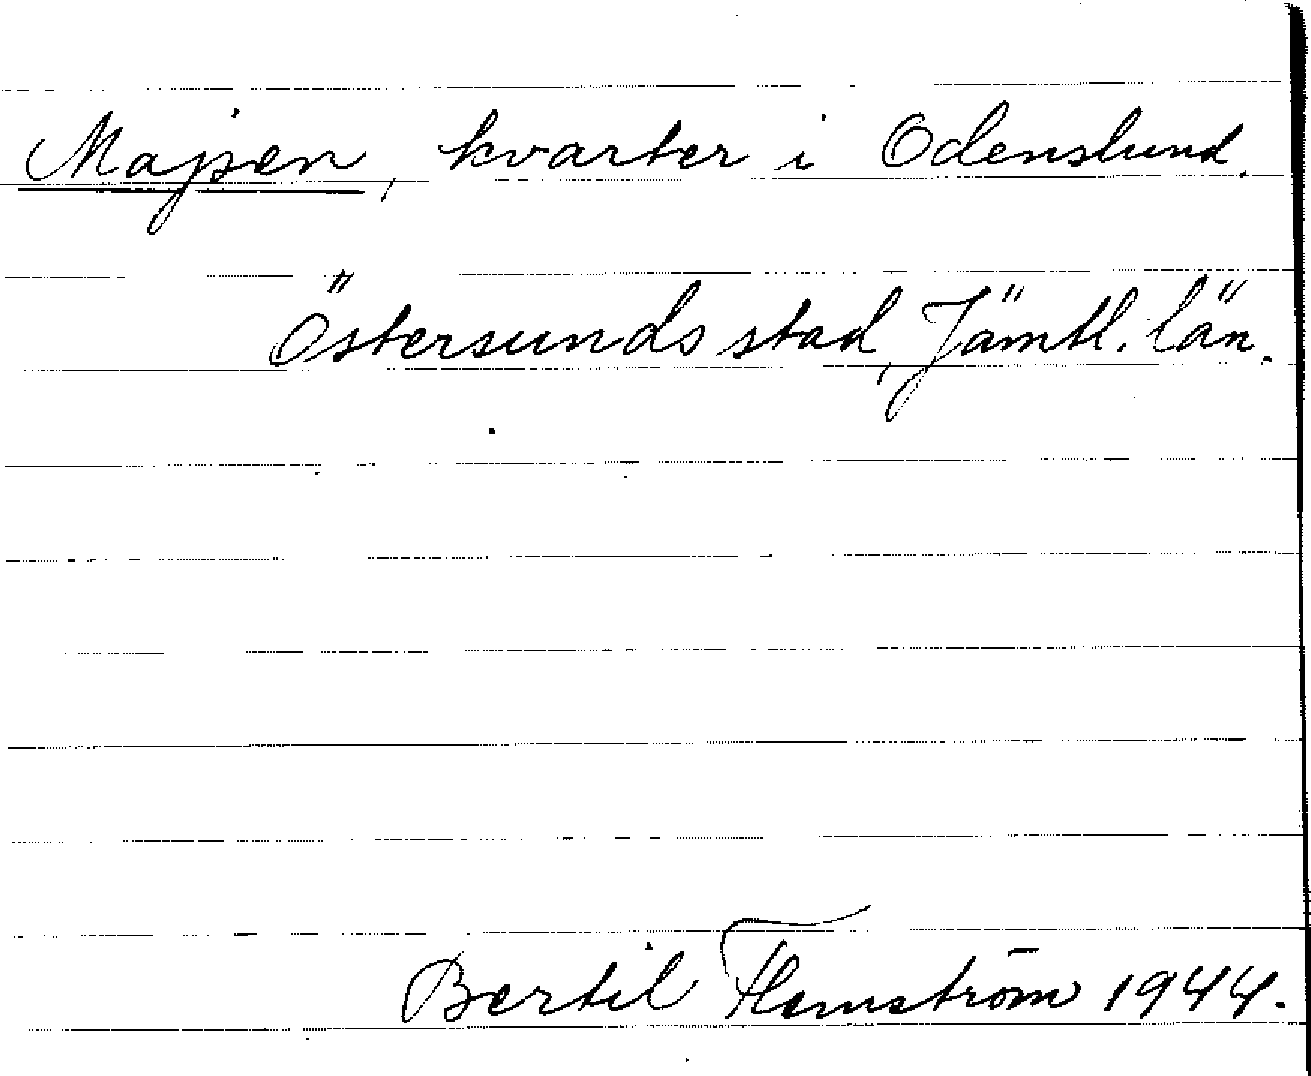 Majsen, kvarter i Odenslund.
Östersunds stad, Jämtl. län.
Bertil Flemström 1944.